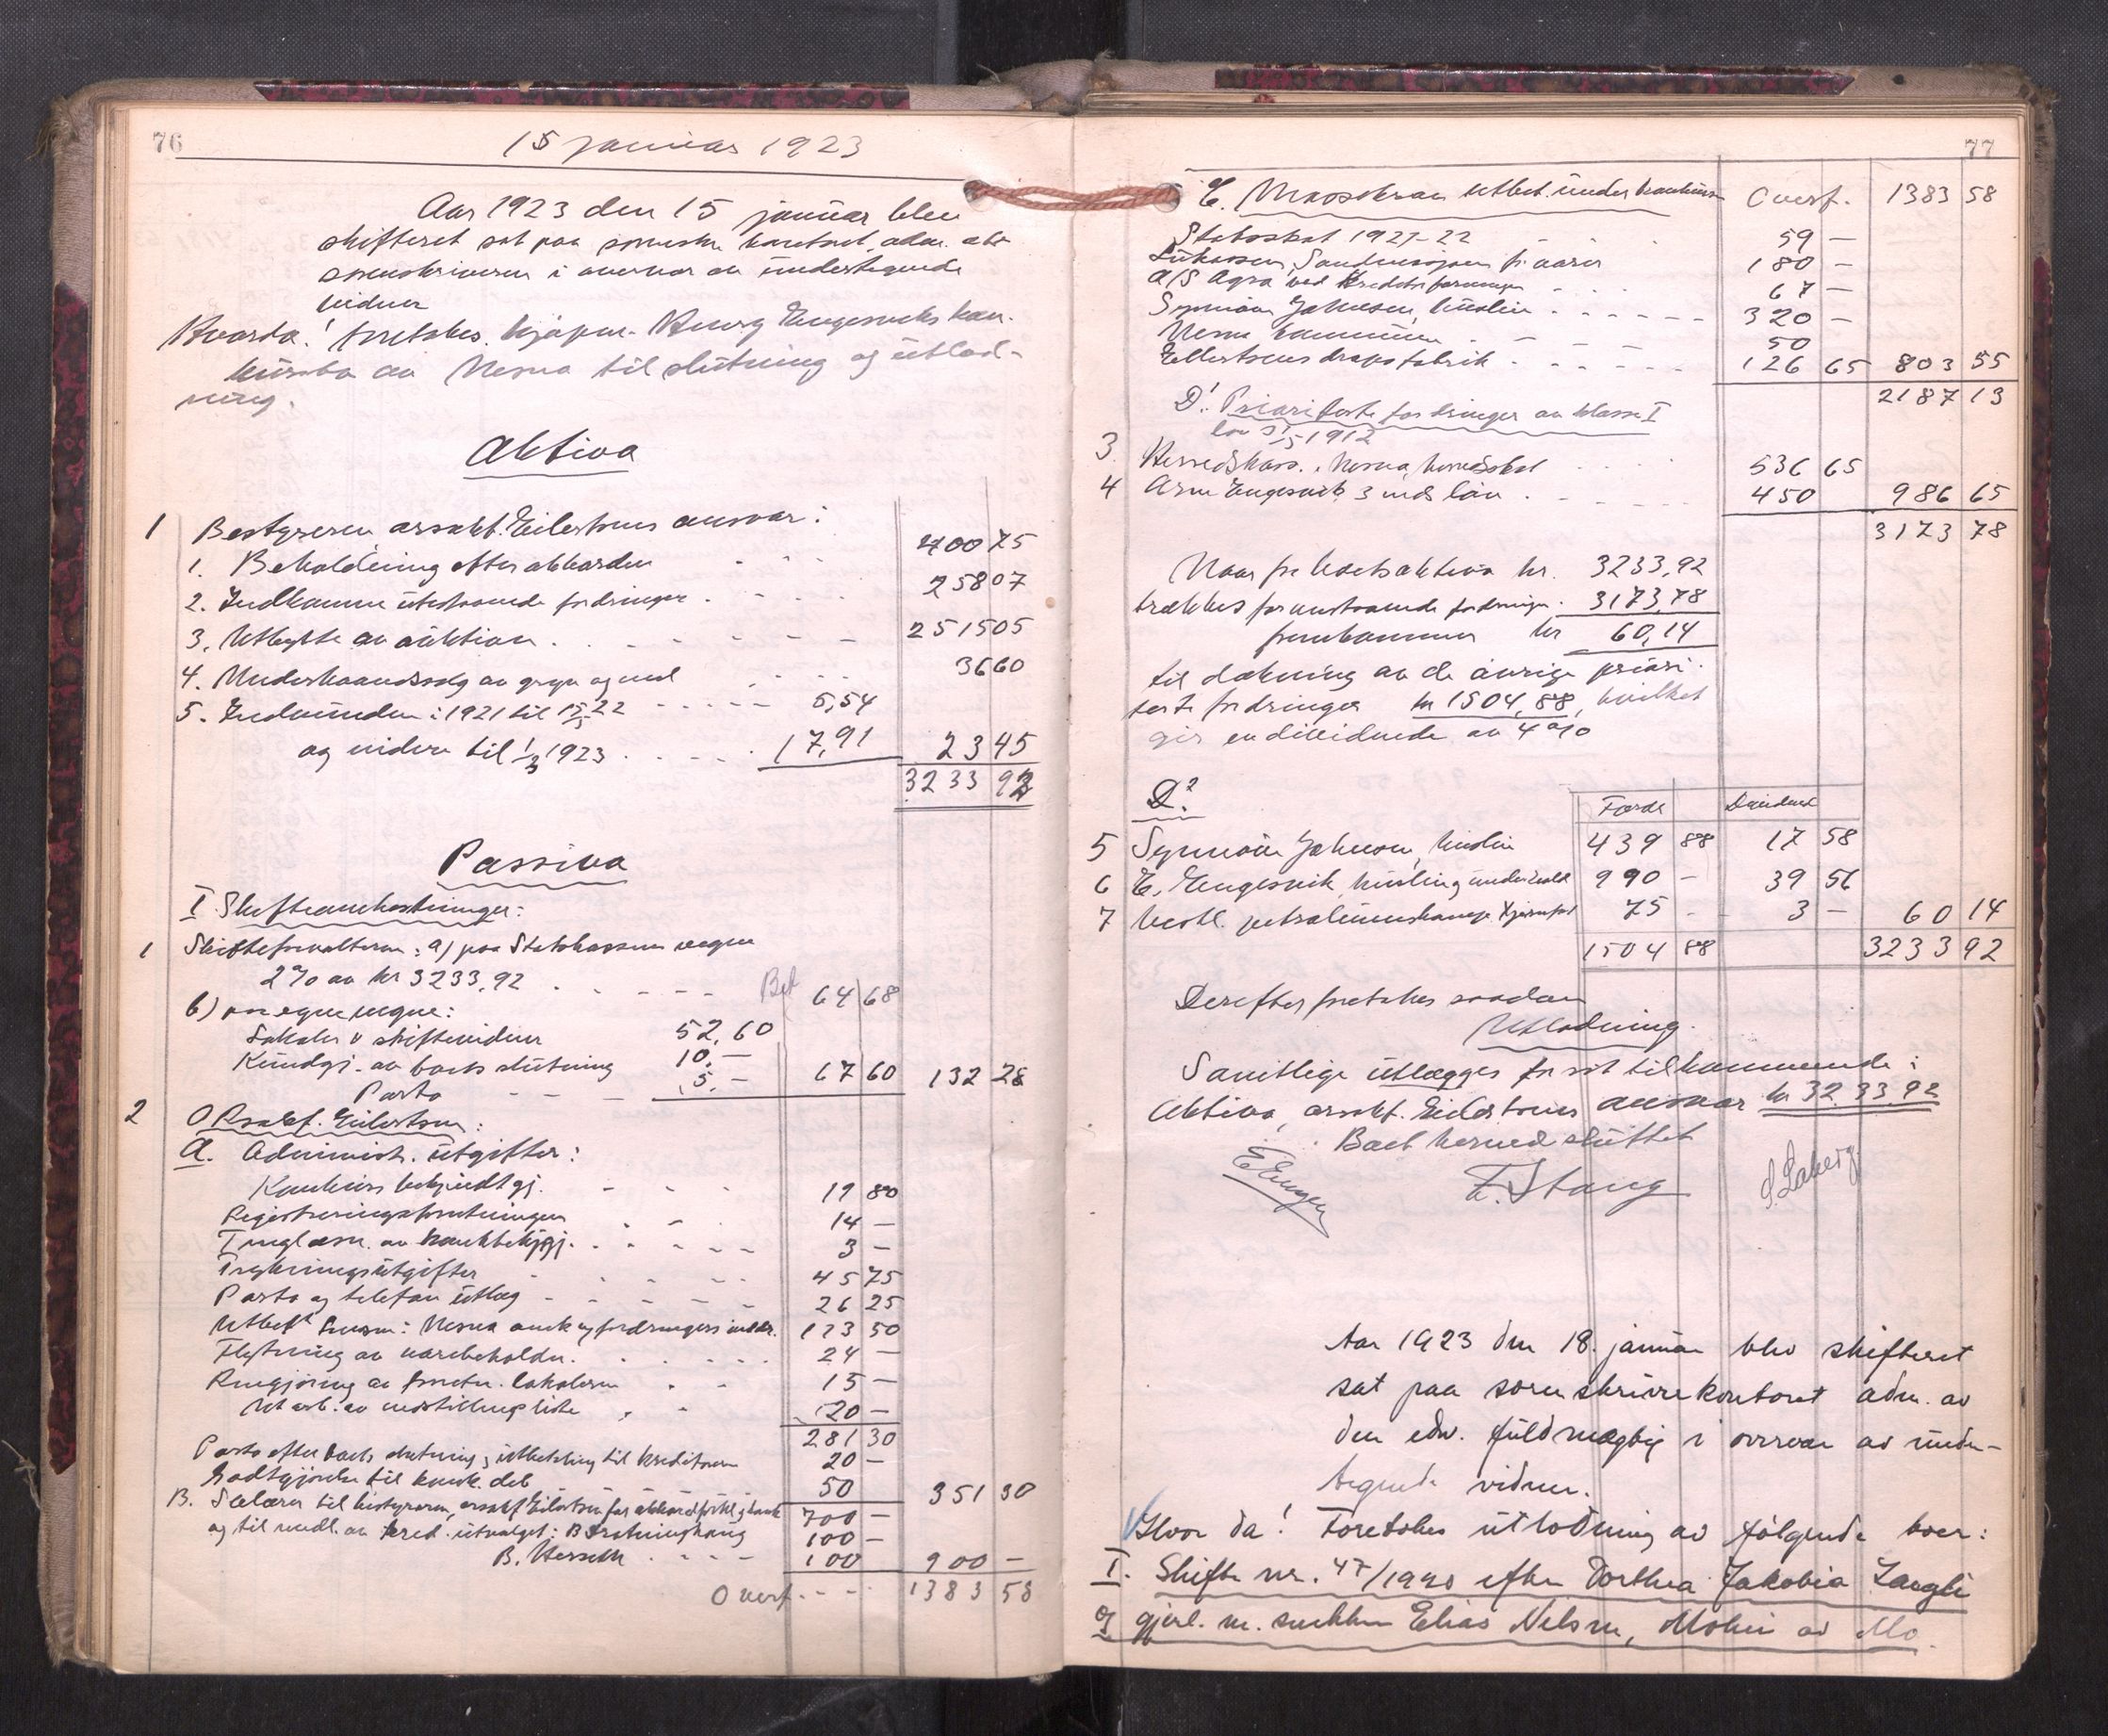 76
15 januar 1923
Aar 1923 den 15 januar blev
skifteret sat paa sorenskr. kontoret, adm. av
sorenskriveren i overvær av undertegnede
vidner
Hvorda! foretokes kjøpm. Georg Engesviks kon-
kursbo av Nesna til slutning og utlod-
ning.
Aktiva
1 Bestyreren orsakf. Eilertsens ansvar:
1. Beholdning efter akkorden 400 75
2. Indkomne utestaaende fordringer 258 07
3. Utbytte av auktion 2515 05
4. Underhaandssalg av gryn og mel 36 60
5. Indvunden i 1921 til 15/5 22 5,54
og videre til 1/3 1923 17,91 23 45
3233 92
Passiva
I Skifteomkostninger:
1 Skifteforvalteren: a) paa Statskassens vegne
2% av kr 3233,92 Bet 64 68
b) paa egne vegne:
Lokaler v skiftevidner 52,60
Kundgj. av boets slutning 10,-
Porto 5,- 67 60 132 28
2 O.Rsakf. Eilertsen:
A. Administr. utgifter:
Konkurs bekjendtgj. 19 80
Registreringsforretningen 14 -
Tinglæsn. av konkbekjgj. 3 -
Trykningsutgifter 45 75
Porto og telefon utlæg 26 25
Utbet. Nesna auk og fordringers inddr. 113 50
Flytning av varebeholdn. 24 -
Rengjøring av forretn. lokalerne 15 -
Utarb. av indstillingsliste 20 -
281 30
Porto efter boets slutning, utbetaling til kreditorer 20 -
Godtgjørelse til konk. deb 50 351 30
B. Salærer til bestyreren, orsakf Eilertsen for akkordforhl. & konk 700 -
og til medl. av kred. utvalget: B. 100 -
B. 100 900 -
Overf. 1383 58
77
C. Massekrav utbet. under konkursen Overf. 1383 58
Statsskat 1921-22 59 -
Lukassen, Sandnessjøen fr. varer 180 -
A/S Agra ved Kreditforeningen 67 -
Synnøve Johnsen, husleie 320 -
Nesna kommune 50
Eilertsens drops fabrik 126 65 803 55
2187 13
D1. Prioriterte fordringer av klasse I
lov 3/5 1912
3. Herredskass. i Nesna, herredsskat 536 65
4 Arne Engesvik 3 mds løn 450 986 65
3173 78
Naar fra boets aktiva kr. 3233,92
trækkes foranstaaende fordringer 3173,78
fremkommer kr 60,14
til dækning av de øvrige priori-
terte fordringer kr 1504,88, hvilket
gir en dividende av 4%
D2. Fordr. Dividend
5 Synnøve Johnsen, husleie 439 88 17 58
6 E. Engesvik, husleie og underhold 990 - 39 56
7 Vestl. petroleumskomp. 75 - 3 - 60 14
1504 88 3233 92
Derefter foretokes saadan
Utlodning.
Samtlige utlægges for sit tilkommende i
Aktiva, orsakf. Eilertsens ansvar kr 3233,92
Boet hermed sluttet
E Engen F. Stang S. Laberg
Aar 1923 den 18. januar blev skifteret
sat paa sorenskriverkontoret adm. av
den edsv. fuldmægtig i overvær av under-
tegnede vidner.
Hvor da! Foretokes utlodning av følgende boer:
I. Skifte nr. 47/1920 efter Dorthea Jakobia Langli
og gjenl. m. snekker Elias Nilsen, Moheim av Mo.